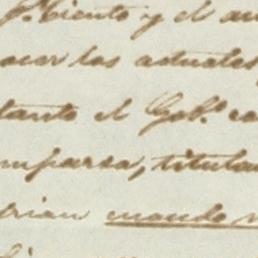 p.r Ciento y el au
ocer los actuales
tanto el Gob.o ca
mparsa, titula
drian cuando